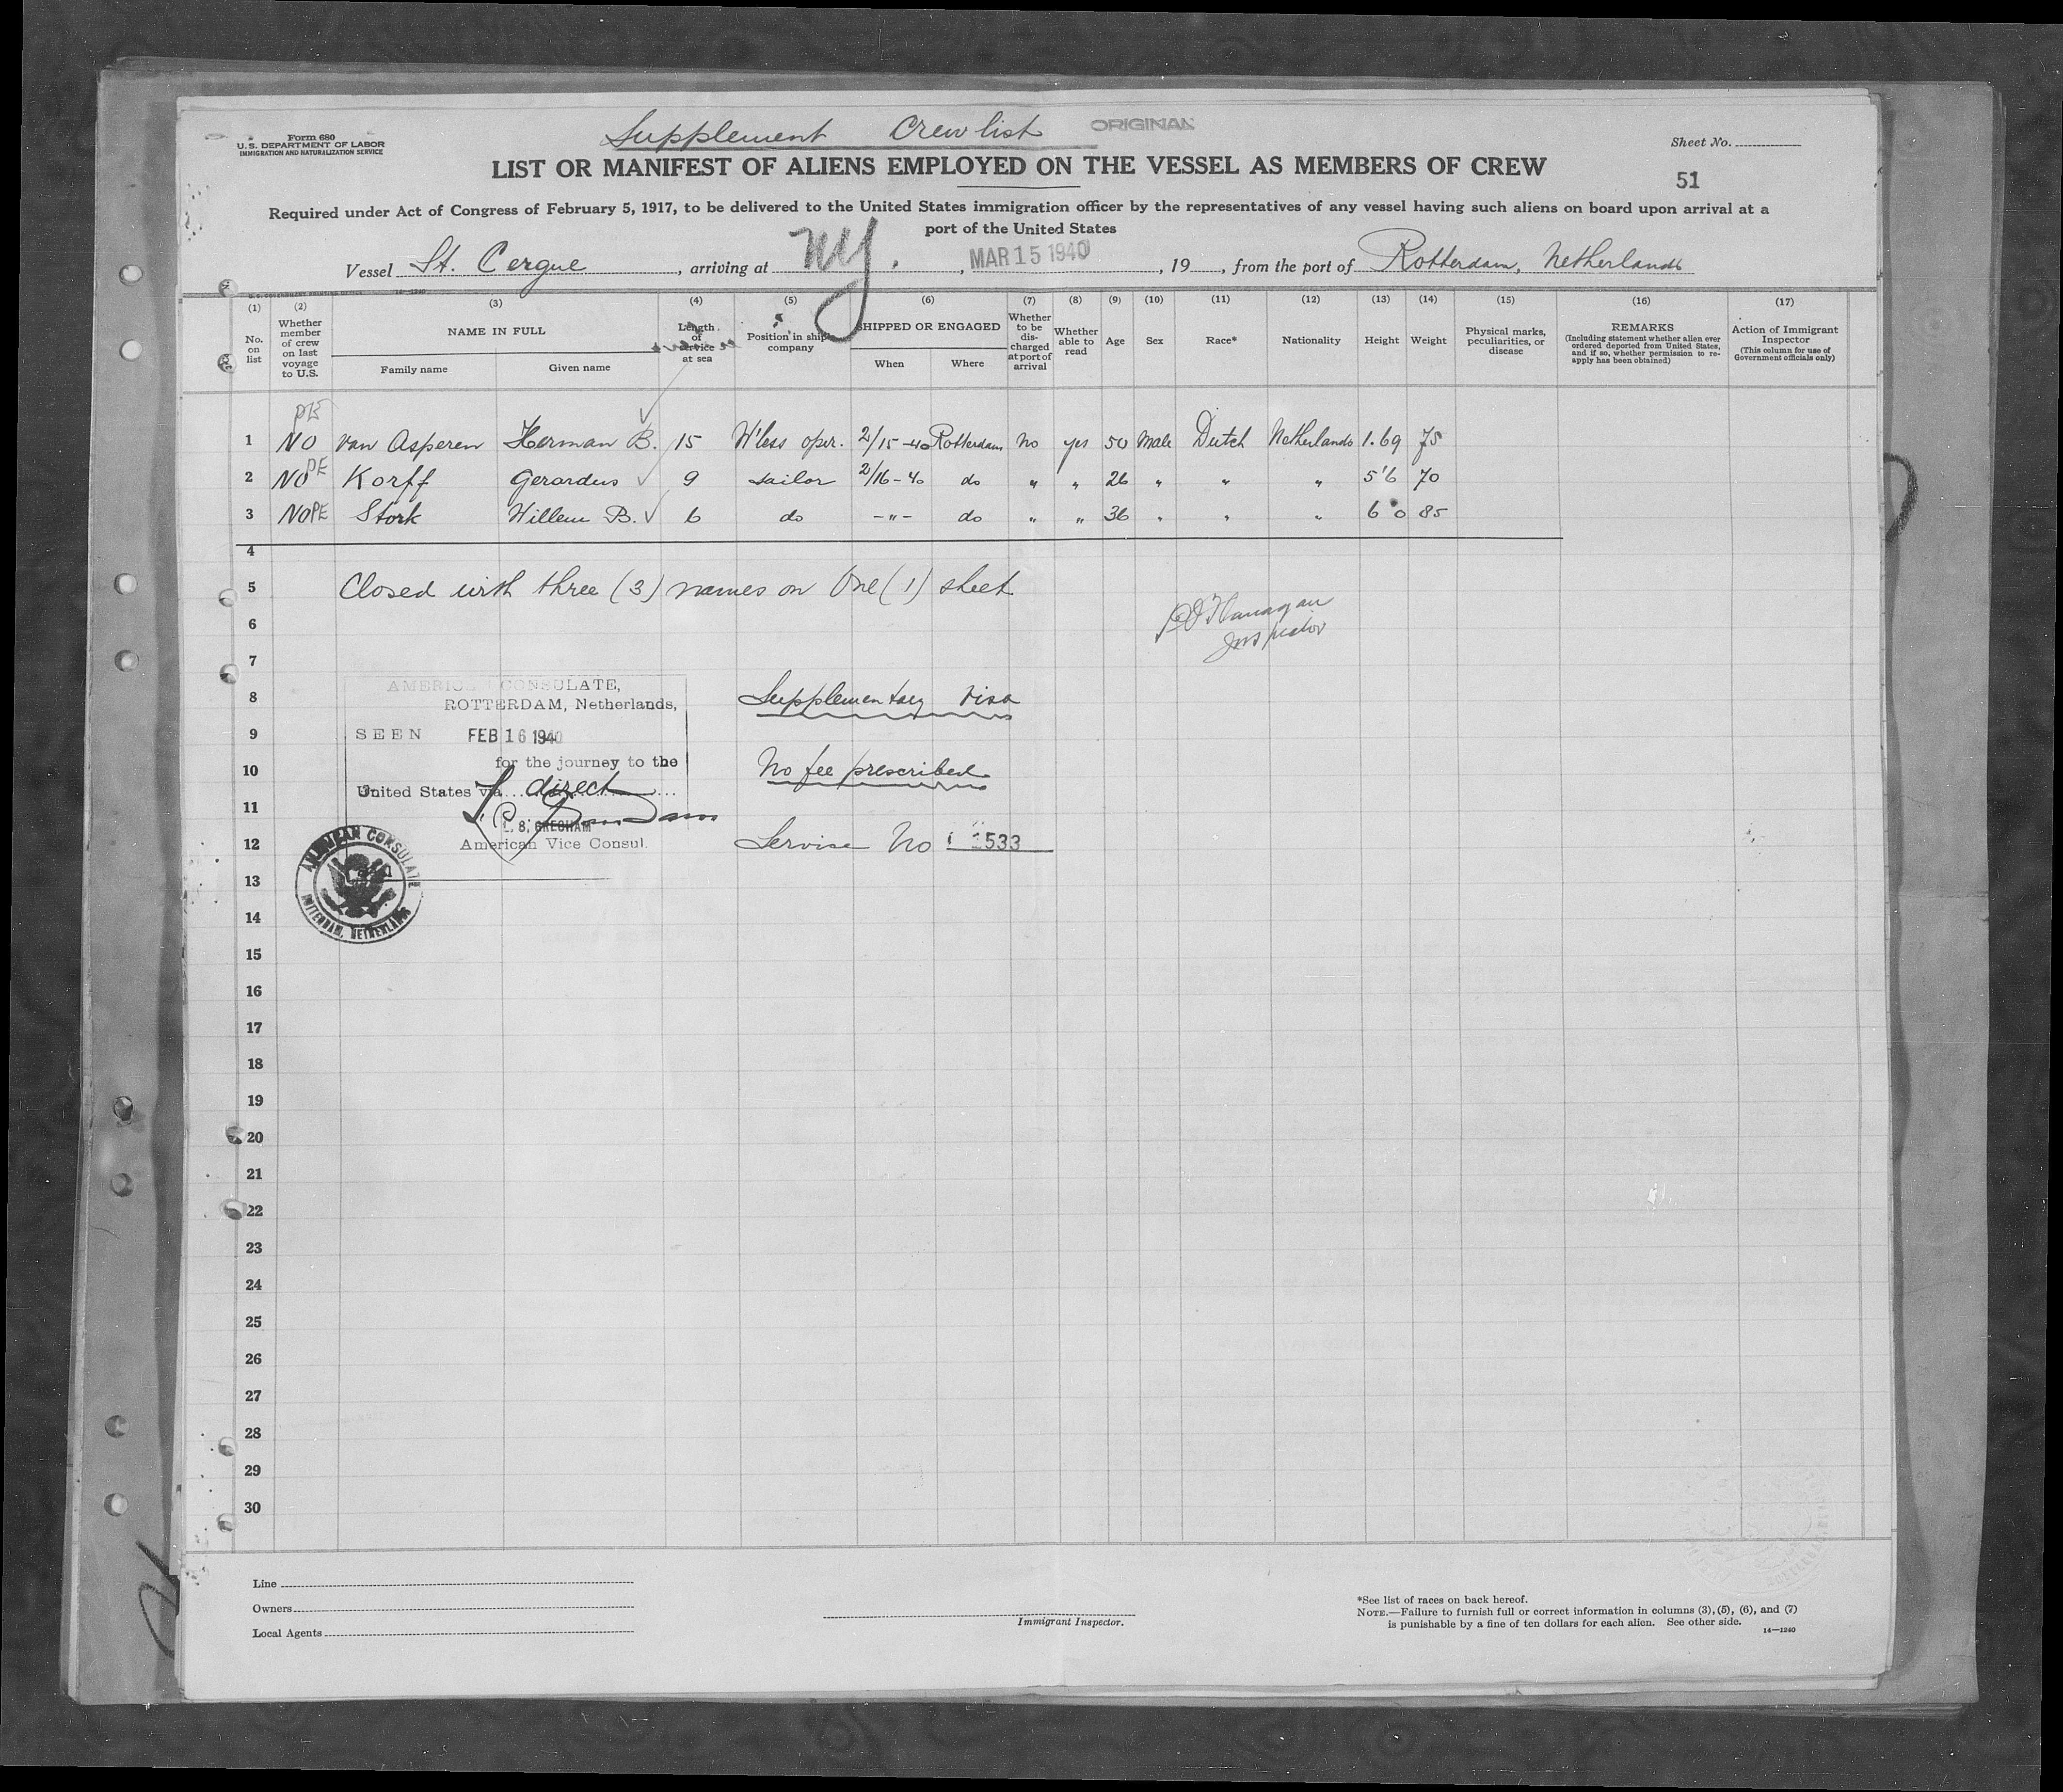 Supplement Crew list ORIGINAL
Form 680
U. S. DEPARTMENT OF LABOR
IMMIGRATION AND NATURALIZATION SERVICE
Sheet No.
LIST OR MANIFEST OF ALIENS EMPLOYED ON THE VESSEL AS MEMBERS OF CREW
51
Required under Act of Congress of February 5, 1917, to be delivered to the United States immigration officer by the representatives of any vessel having such aliens on board upon arrival at a
port of the United States
Vessel St. Cergue, arriving at NY., MAR 15 1940, 19, from the port of Rotterdam, Netherlands
(1) (2) (3) (4) (5) (6) (7) (8) (9) (10) (11) (12) (13) (14) (15) (16) (17)
No. on list
Whether member of crew on last voyage to U.S.
NAME IN FULL
Family name
Given name
Length of service at sea
Position in ship's company
SHIPPED OR ENGAGED
When
Where
Whether to be discharged at port of arrival
Whether able to read
Age
Sex
Race*
Nationality
Height
Weight
Physical marks, peculiarities, or disease
REMARKS
(Including statement whether alien ever ordered deported from United States, and if so, whether permission to reapply has been obtained)
Action of Immigrant Inspector
(This column for use of Government officials only)
PE
1 NO van Asperen Herman B. 15 W'less oper. 2/15-40 Rotterdam No yes 50 Male Dutch Netherlands 1.69 75
2 NO PE Korff Gerardus 9 sailor 2/16-40 do " " 26 " " " 5'6 70
3 NO PE Stork Willem B. 6 do -"- do " " 36 " " " 6'0 85
4
5 Closed with three (3) names on One (1) sheet
6
Inspector
7
AMERICAN CONSULATE,
8 Supplementary Visa
ROTTERDAM, Netherlands,
9 SEEN FEB 16 1940
for the journey to the
10 No fee prescribed
United States via direct
11
L. B. GRESHAM
12 American Vice Consul. Service No 1533
AMERICAN CONSULATE
ROTTERDAM, NETHERLANDS
13
14
15
16
17
18
19
20
21
22
23
24
25
26
27
28
29
30
Line
Owners
Local Agents
Immigrant Inspector.
*See list of races on back hereof.
NOTE.—Failure to furnish full or correct information in columns (3), (5), (6), and (7)
is punishable by a fine of ten dollars for each alien. See other side.
14—1240